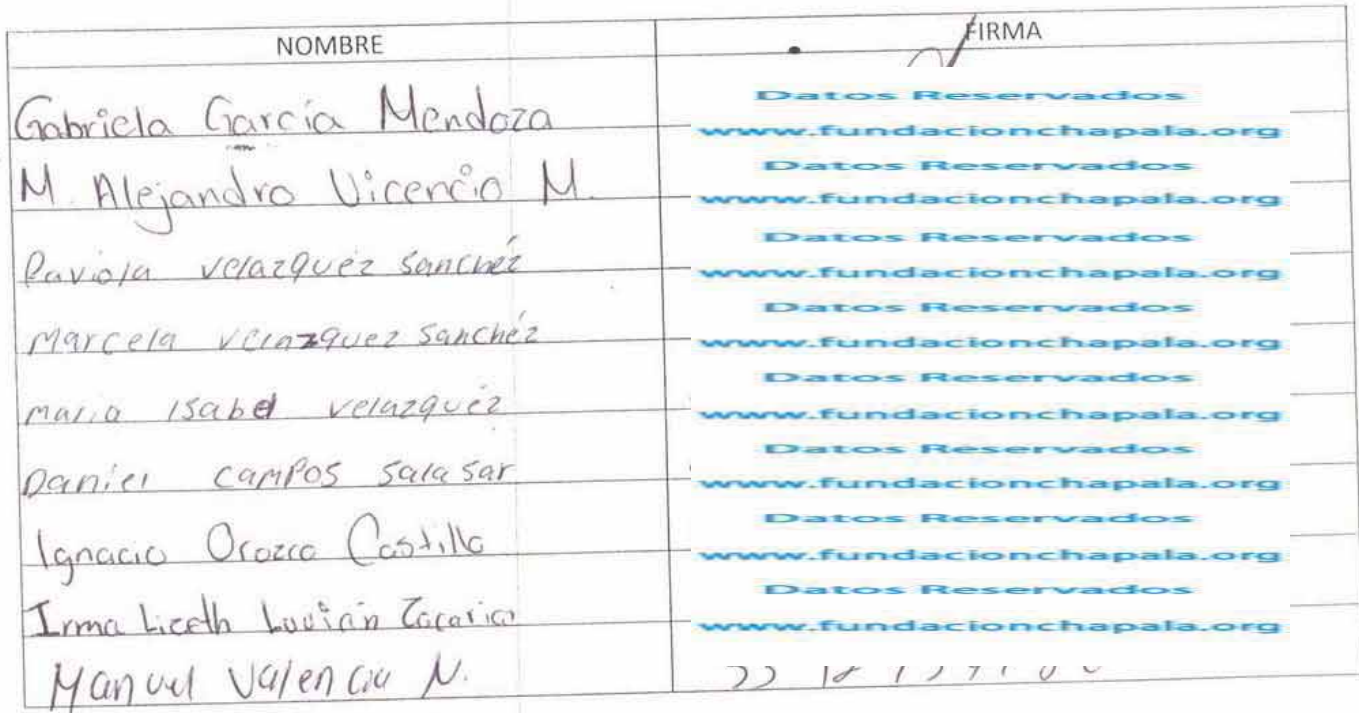 NOMBRE FIRMA
Gabriela García Mendoza
Datos Reservados
www.fundacionchapala.org
M. Alejandro Vicencio M.
Datos Reservados
www.fundacionchapala.org
Paviola velazquéz Sanchéz
Datos Reservados
www.fundacionchapala.org
Marcela velazquez Sanchéz
Datos Reservados
www.fundacionchapala.org
Maria Isabel velazquéz
Datos Reservados
www.fundacionchapala.org
Daniel Campos Salasar
Datos Reservados
www.fundacionchapala.org
Ignacio Orozco Castillo
Datos Reservados
www.fundacionchapala.org
Irma Liceth
Datos Reservados
www.fundacionchapala.org
Manuel Valencia N.